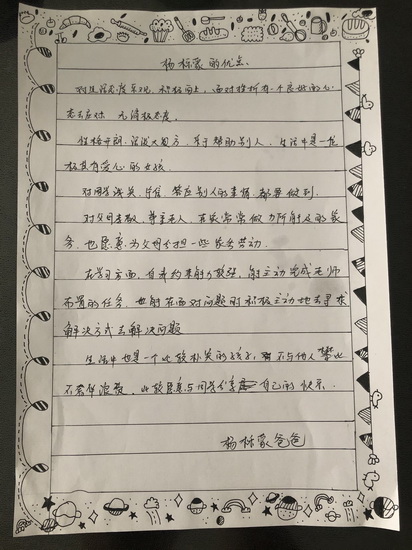 杨林蒙的优点
对生活态度乐观,积极向上,面对挫折有一个良好的心
态去应对,无消极态度。
性格开朗,活泼大方,乐于帮助别人,生活中是一位
极具有爱心的女孩。
对同学诚实、守信,答应别人的事情,都要做到。
对父母孝敬,尊重老人,在家常常做力所能及的家
务,也愿意为父母分担一些家务劳动。
在学习方面,自我约束能力较强,能主动完成老师
布置的任务,也能在面对问题时积极主动地去寻求
解决方式去解决问题
生活中也是一个比较朴素的孩子,不与他人攀比
不奢侈浪费,比较愿意与同学分享自己的快乐.
杨林蒙爸爸